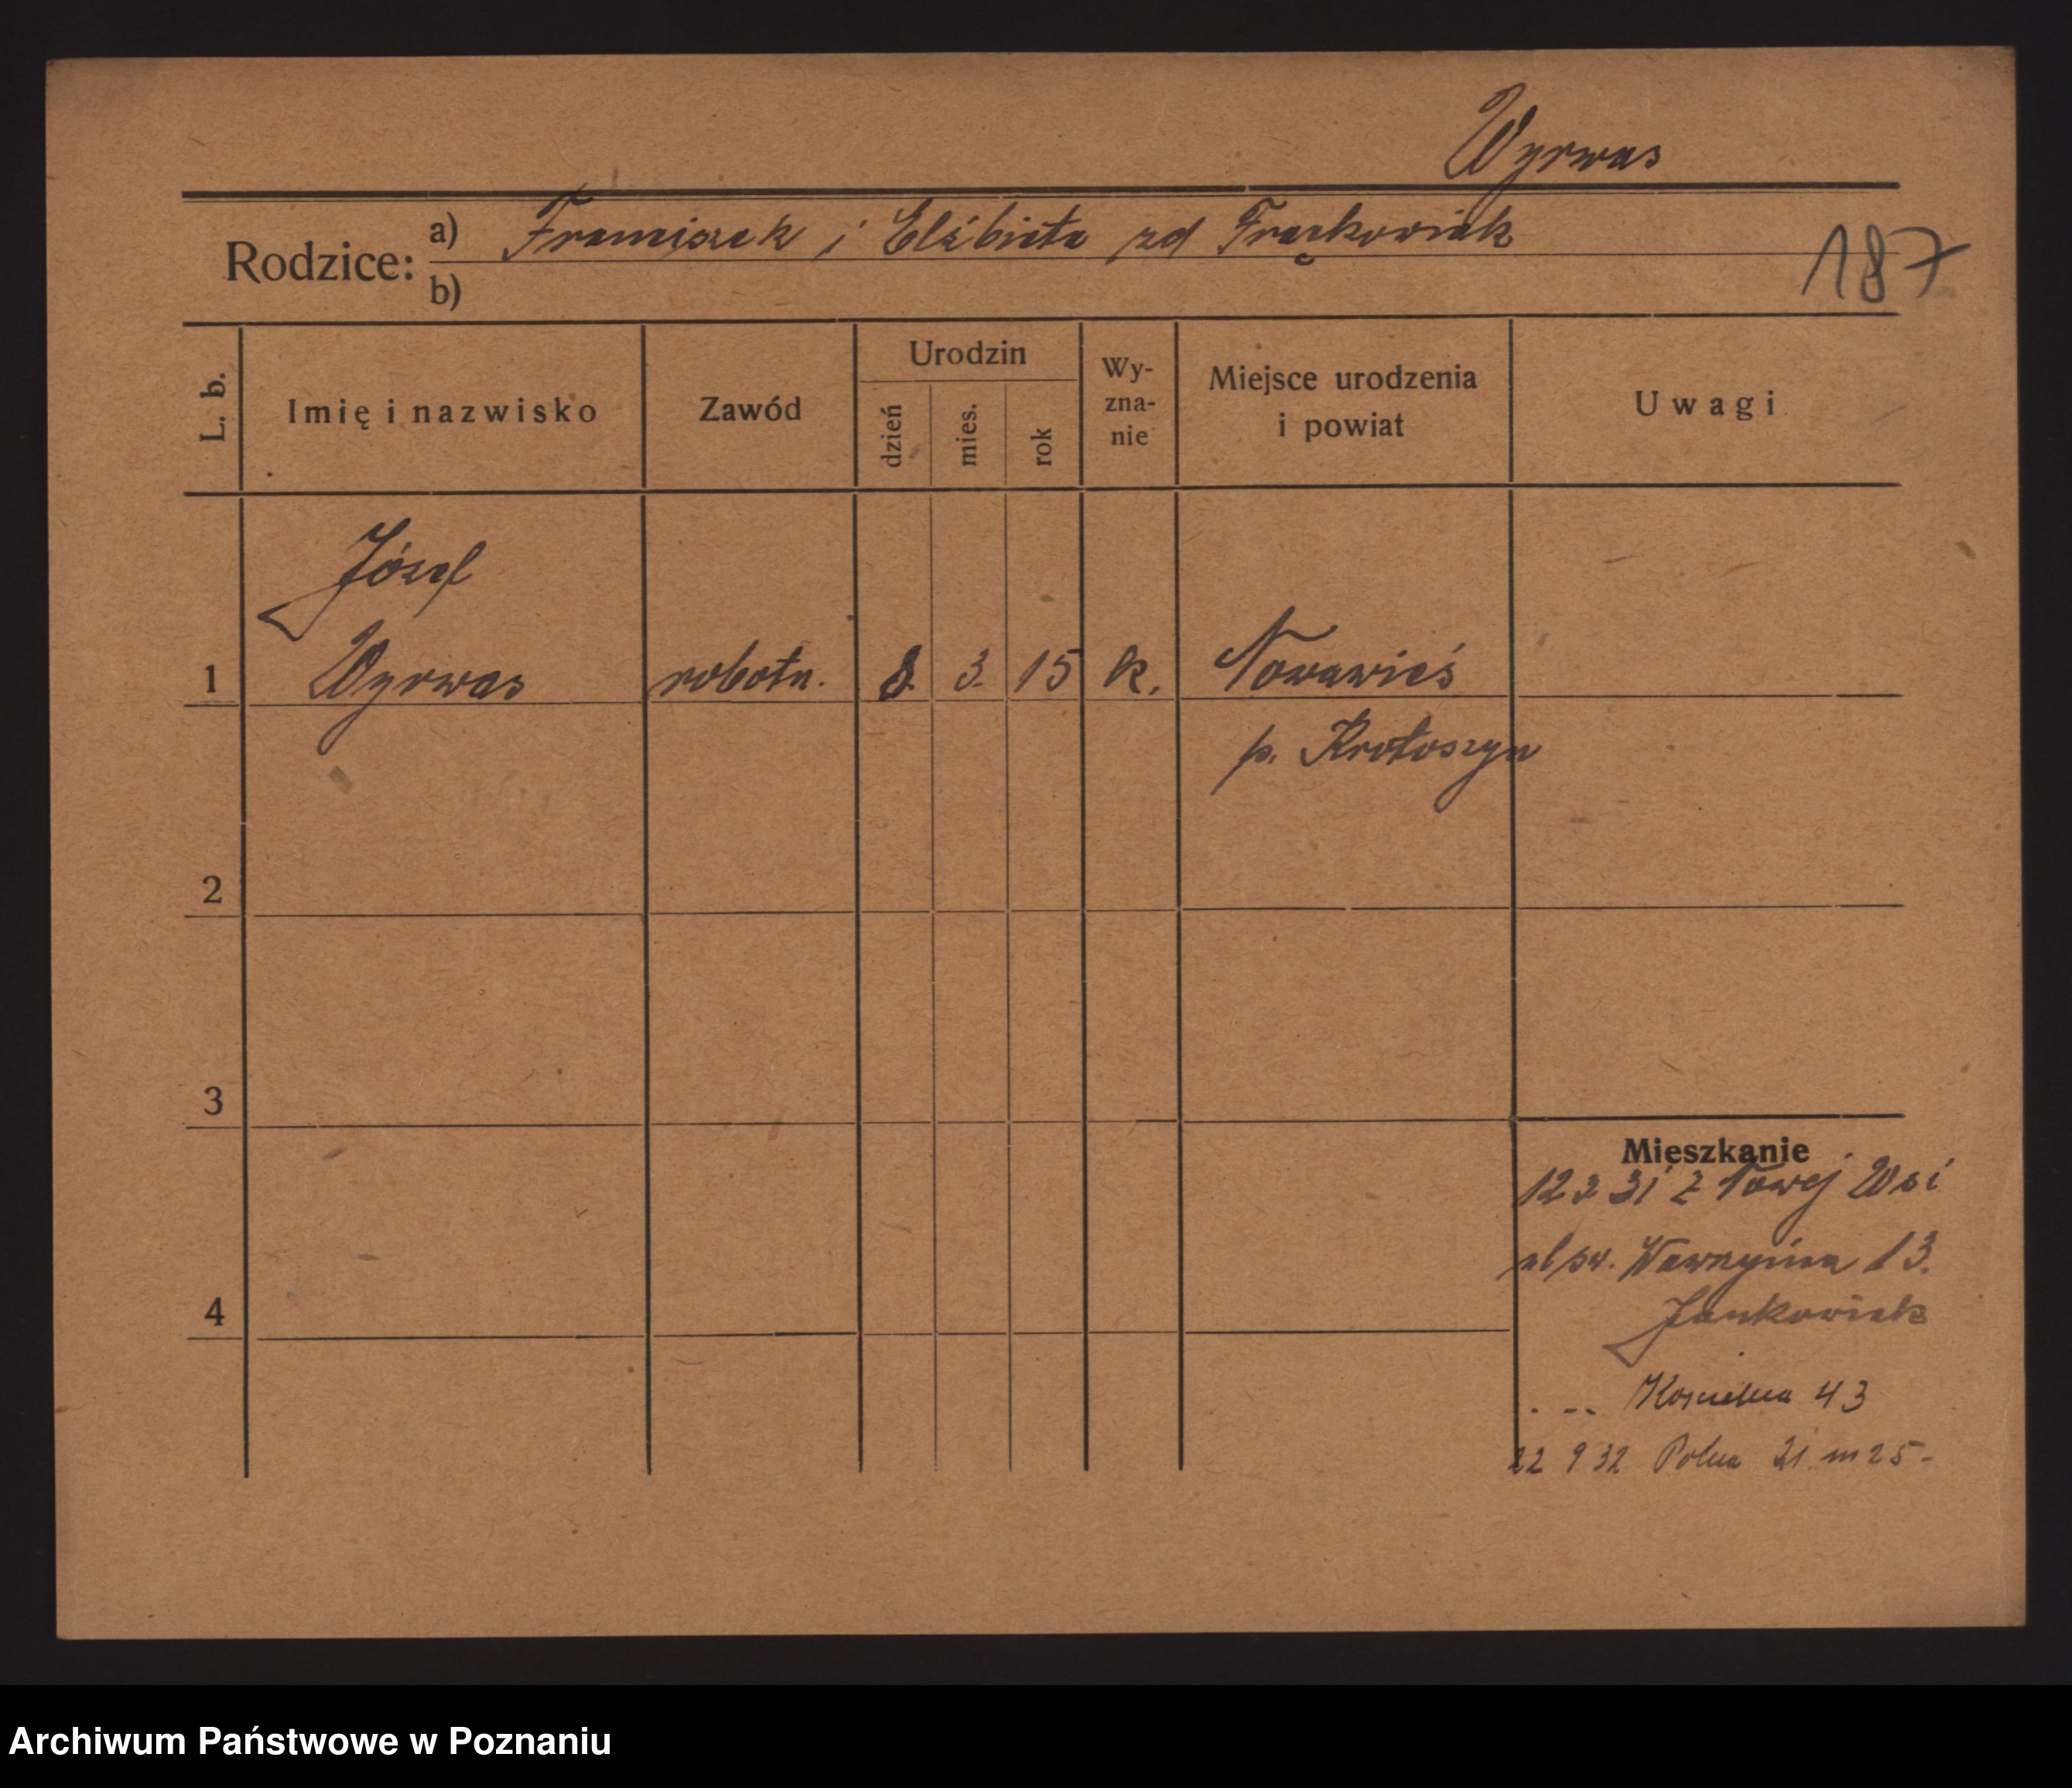 Wyrwas
Rodzice: a) Franciszek i Elżbieta zd Frąckowiak
b)
187
L. b. Imię i nazwisko Zawód Urodzin dzień mies. rok Wy-zna-nie Miejsce urodzenia i powiat Uwagi
Józef
1 Wyrwas robotn. 8. 3. 15 k. Nowawieś
p. Krotoszyn
2
3
Mieszkanie
12 2 31 z Nowej Wsi
ul św. Wawrzyńca 13.
4 Jankowiak
. -- Kościelna 43
22 9 32 Polna 21 m 25-
Archiwum Państwowe w Poznaniu